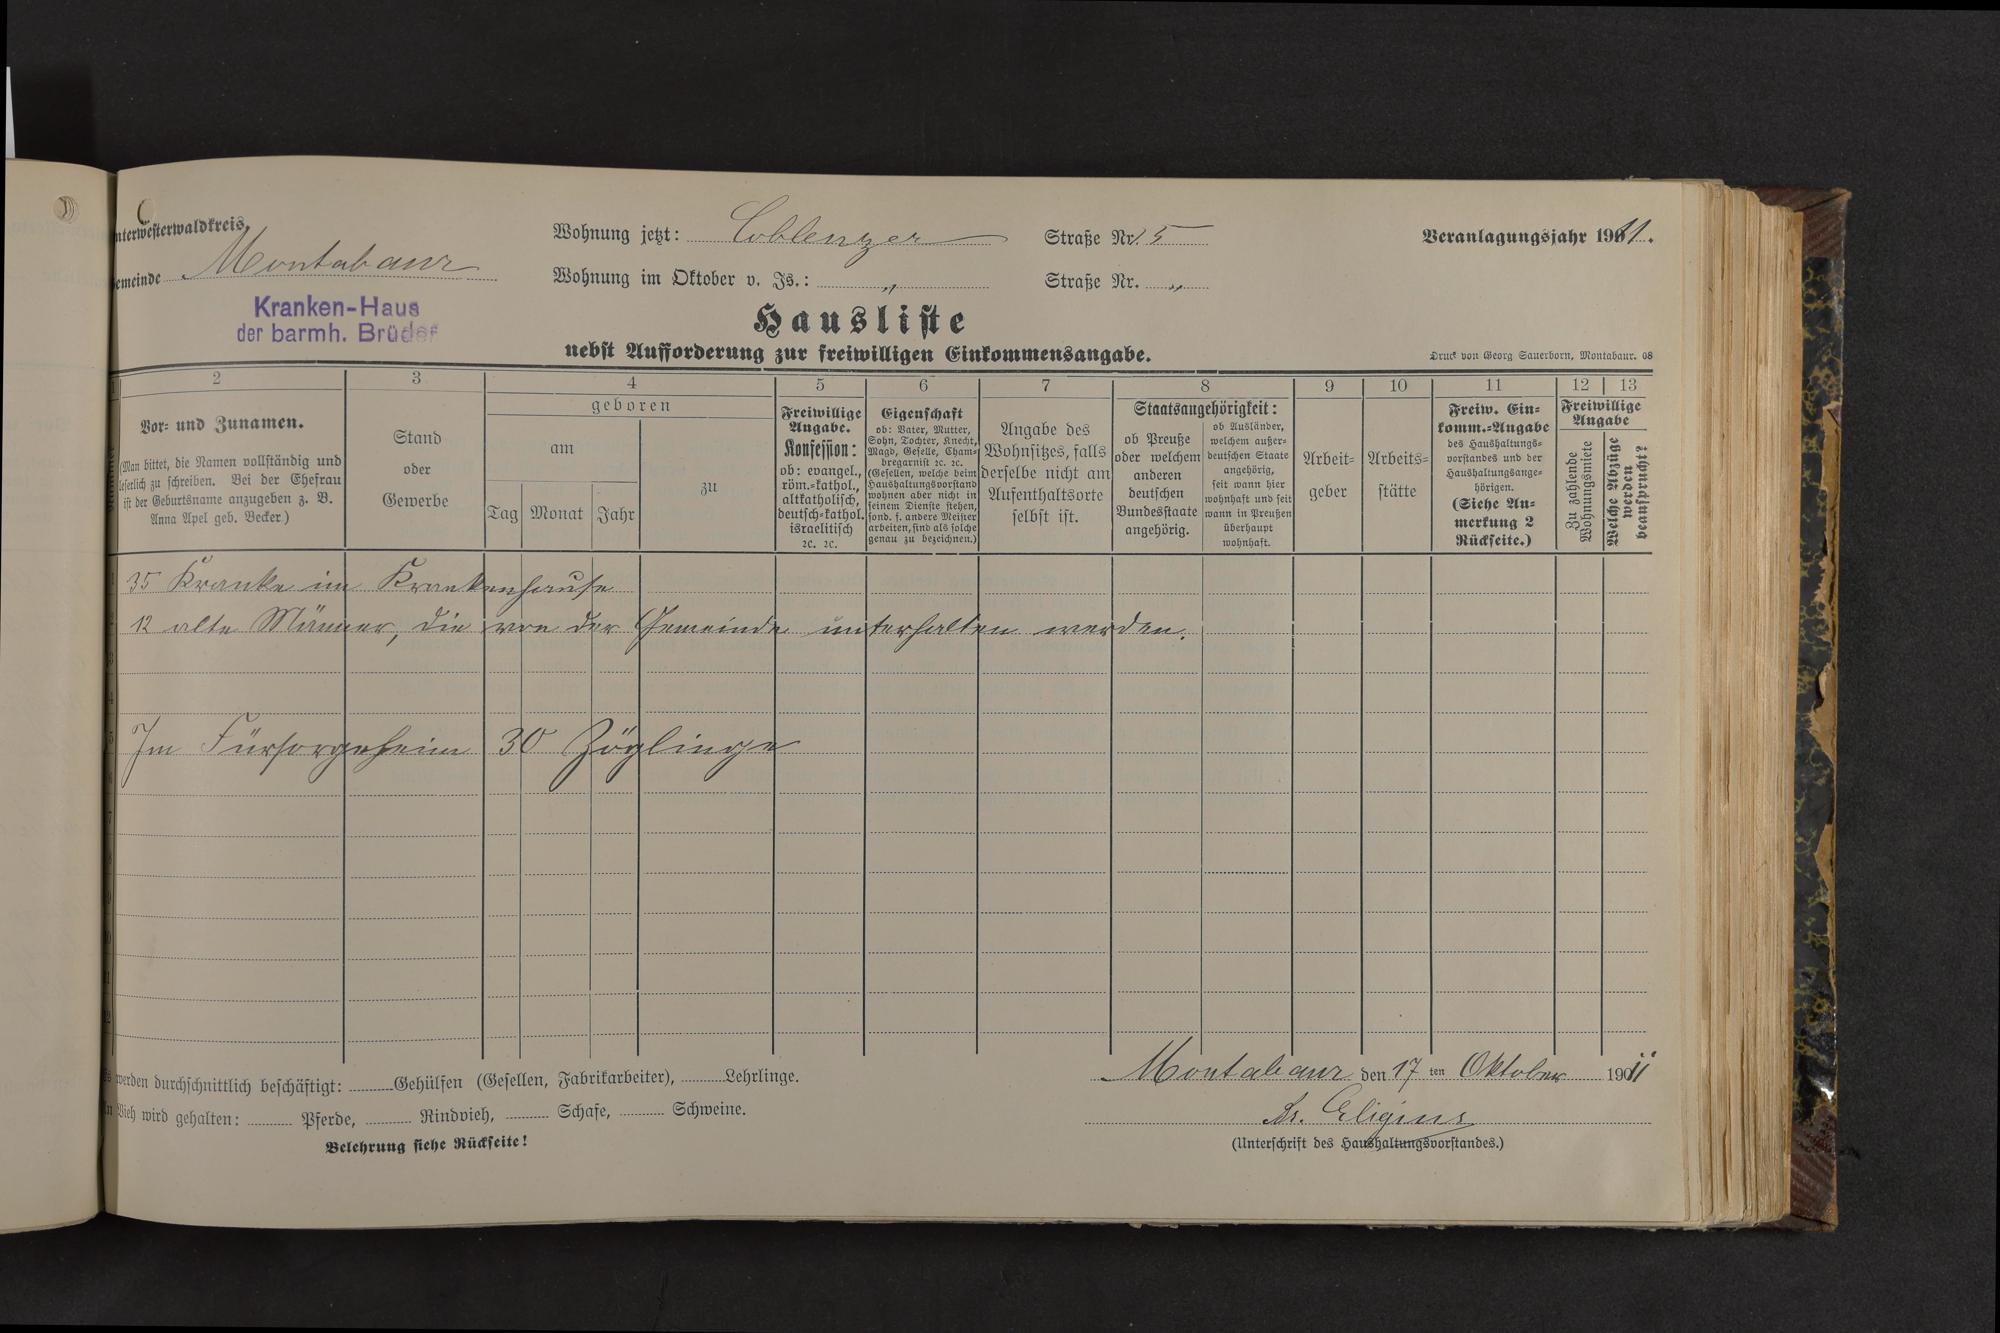 Unterwesterwaldkreis.
Gemeinde Montabaur
Wohnung jetzt: Coblenzer Straße Nr. 5
Wohnung im Oktober v. Js.: „ Straße Nr. „
Veranlagungsjahr 1911.
Kranken-Haus
der barmh. Brüder
Hausliste
nebst Aufforderung zur freiwilligen Einkommensangabe.
Druck von Georg Sauerborn, Montabaur. 08
1 2 3 4 5 6 7 8 9 10 11 12 13
Vor- und Zunamen.
(Man bittet, die Namen vollständig und
leserlich zu schreiben. Bei der Ehefrau
ist der Geburtsname anzugeben z. B.
Anna Apel geb. Becker.)
Stand
oder
Gewerbe
geboren
am
Tag Monat Jahr
zu
Freiwillige
Angabe.
Konfession:
ob: evangel.,
röm.-kathol.,
altkatholisch,
deutsch-kathol.
israelitisch
ꝛc. ꝛc.
Eigenschaft
ob: Vater, Mutter,
Sohn, Tochter, Knecht,
Magd, Geselle, Cham-
bregarnist ꝛc. ꝛc.
(Gesellen, welche beim
Haushaltungsvorstand
wohnen aber nicht in
seinem Dienste stehen,
sond. f. andere Meister
arbeiten, sind als solche
genau zu bezeichnen.)
Angabe des
Wohnsitzes, falls
derselbe nicht am
Aufenthaltsorte
selbst ist.
Staatsangehörigkeit:
ob Preuße
oder welchem
anderen
deutschen
Bundesstaate
angehörig.
ob Ausländer,
welchem außer-
deutschen Staate
angehörig,
seit wann hier
wohnhaft und seit
wann in Preußen
überhaupt
wohnhaft.
Arbeit-
geber
Arbeits-
stätte
Freiw. Ein-
komm.-Angabe
des Haushaltungs-
vorstandes und der
Haushaltungsange-
hörigen.
(Siehe An-
merkung 2
Rückseite.)
Freiwillige
Angabe
Zu zahlende
Wohnungsmiete
Welche Abzüge
werden
beansprucht?
1 35 Kranke im Krankenhause
2 12 alte Männer, die von der Gemeinde unterhalten werden.
3
4
5 Im Fürsorgeheim 30 Zöglinge
6
7
8
9
10
11
12
Es werden durchschnittlich beschäftigt: Gehülfen (Gesellen, Fabrikarbeiter), Lehrlinge.
An Vieh wird gehalten: Pferde, Rindvieh, Schafe, Schweine.
Belehrung siehe Rückseite!
Montabaur den 17 ten Oktober 1911
Br. Eligius
(Unterschrift des Haushaltungsvorstandes.)